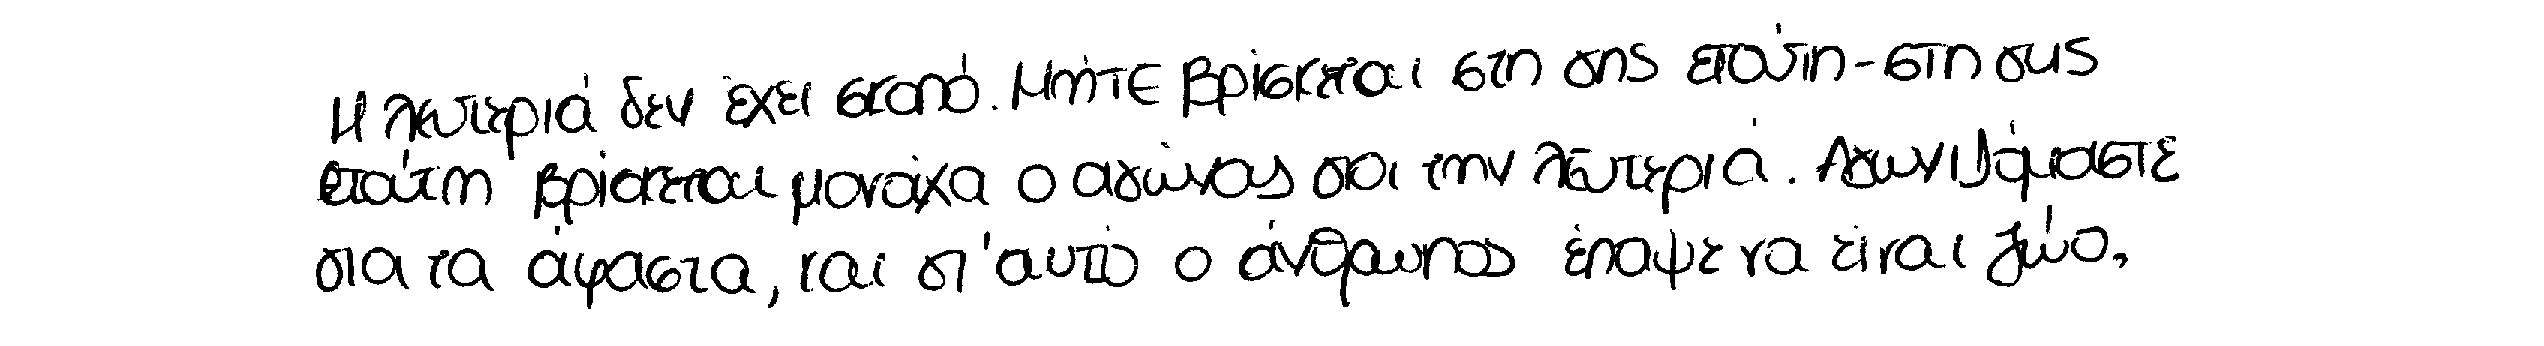 Η λευτεριά δεν έχει σκοπό. Μήτε βρίσκεται στη γης ετούτη-στη γης
ετούτη βρίσκεται μονάχα ο αγώνας για την λευτεριά. Αγωνιζόμαστε
για τα άφαστα, και γι'αυτό ο άνθρωπος έπαψε να είναι ζώο,